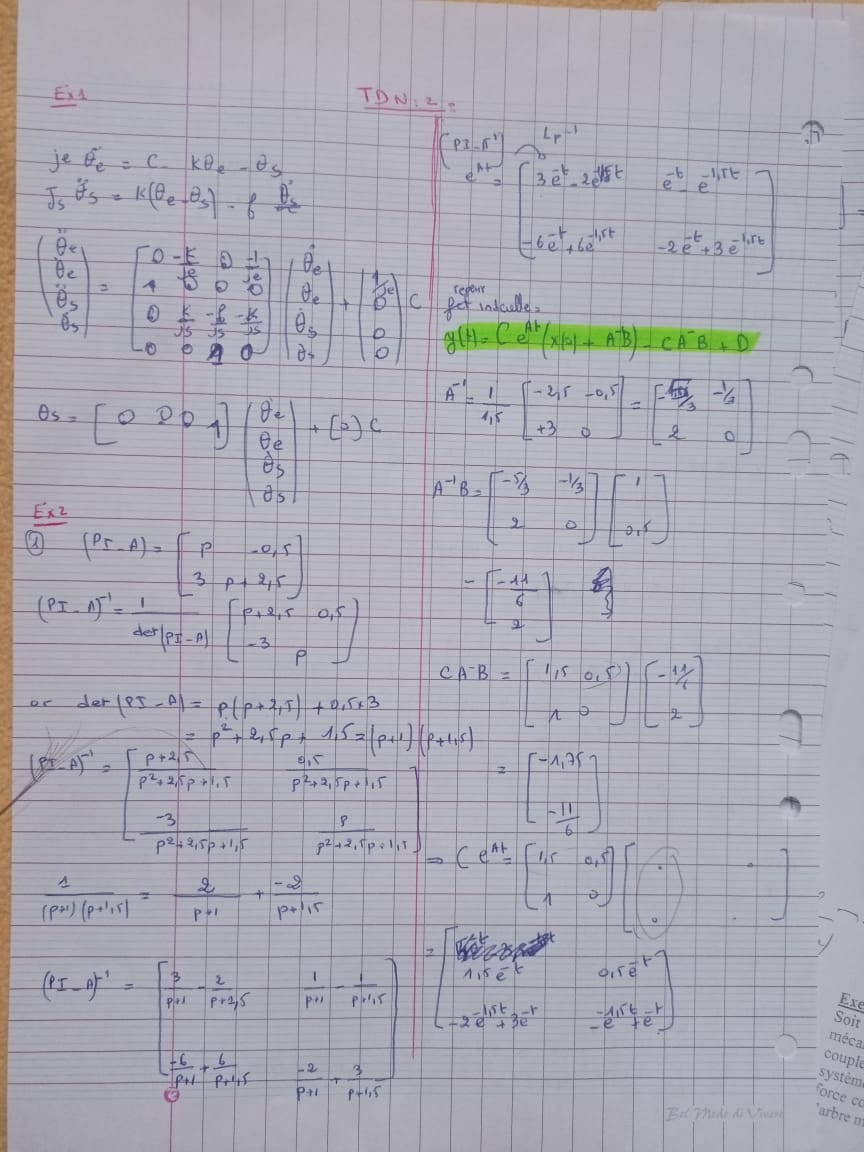 Ex1
TDN: 2 :
je θ̈e = C - kθe - θs
Js θ̈s = K(θe - θs) - f θ̇s
[θ̈e θ̇e θ̈s θ̇s] = [0 -k/je 0 -1/je ; 1 0 0 0 ; 0 k/js -f/js -k/js ; 0 0 1 0] [θ̇e θe θ̇s θs] + [1/je 0 0 0] C
θs = [0 0 0 1] [θ̇e θe θ̇s θs] + [0] C
Ex2
① (PI - A) = [p -0,5 ; 3 p+2,5]
(PI - A)⁻¹ = 1/det(PI - A) [p+2,5 0,5 ; -3 p]
or det(PI - A) = p(p+2,5) + 0,5×3
= p² + 2,5p + 1,5 = (p+1)(p+1,5)
(PI - A)⁻¹ = [p+2,5/p²+2,5p+1,5 0,5/p²+2,5p+1,5 ; -3/p²+2,5p+1,5 p/p²+2,5p+1,5]
1/(p+1)(p+1,5) = 2/p+1 + -2/p+1,5
(PI - A)⁻¹ = [3/p+1 - 2/p+1,5 1/p+1 - 1/p+1,5 ; -6/p+1 + 6/p+1,5 -2/p+1 + 3/p+1,5]
Lp⁻¹
e^At = [3e^-t - 2e^-1,5t e^-t - e^-1,5t ; -6e^-t + 6e^-1,5t -2e^-t + 3e^-1,5t]
y(t) = C e^At (x(0) + A⁻¹B) - CA⁻¹B + D
A⁻¹ = 1/1,5 [-2,5 -0,5 ; +3 0] = [-5/3 -1/3 ; 2 0]
A⁻¹B = [-5/3 -1/3 ; 2 0] [1 ; 0,5]
= [-11/6 ; 2]
CA⁻B = [1,5 0,5 ; 1 0] [-11/6 ; 2]
= [-1,75 ; -11/6]
⇒ C e^At = [1,5 0,5 ; 1 0] [. . ; .]
= [1,5e^-t 0,5e^-t ; -2e^-1,5t + 3e^-t -e^-1,5t + e^-t]
Exe
Soit
méca
couple
systèm
force co
'arbre m
Bel Mode di Vivere